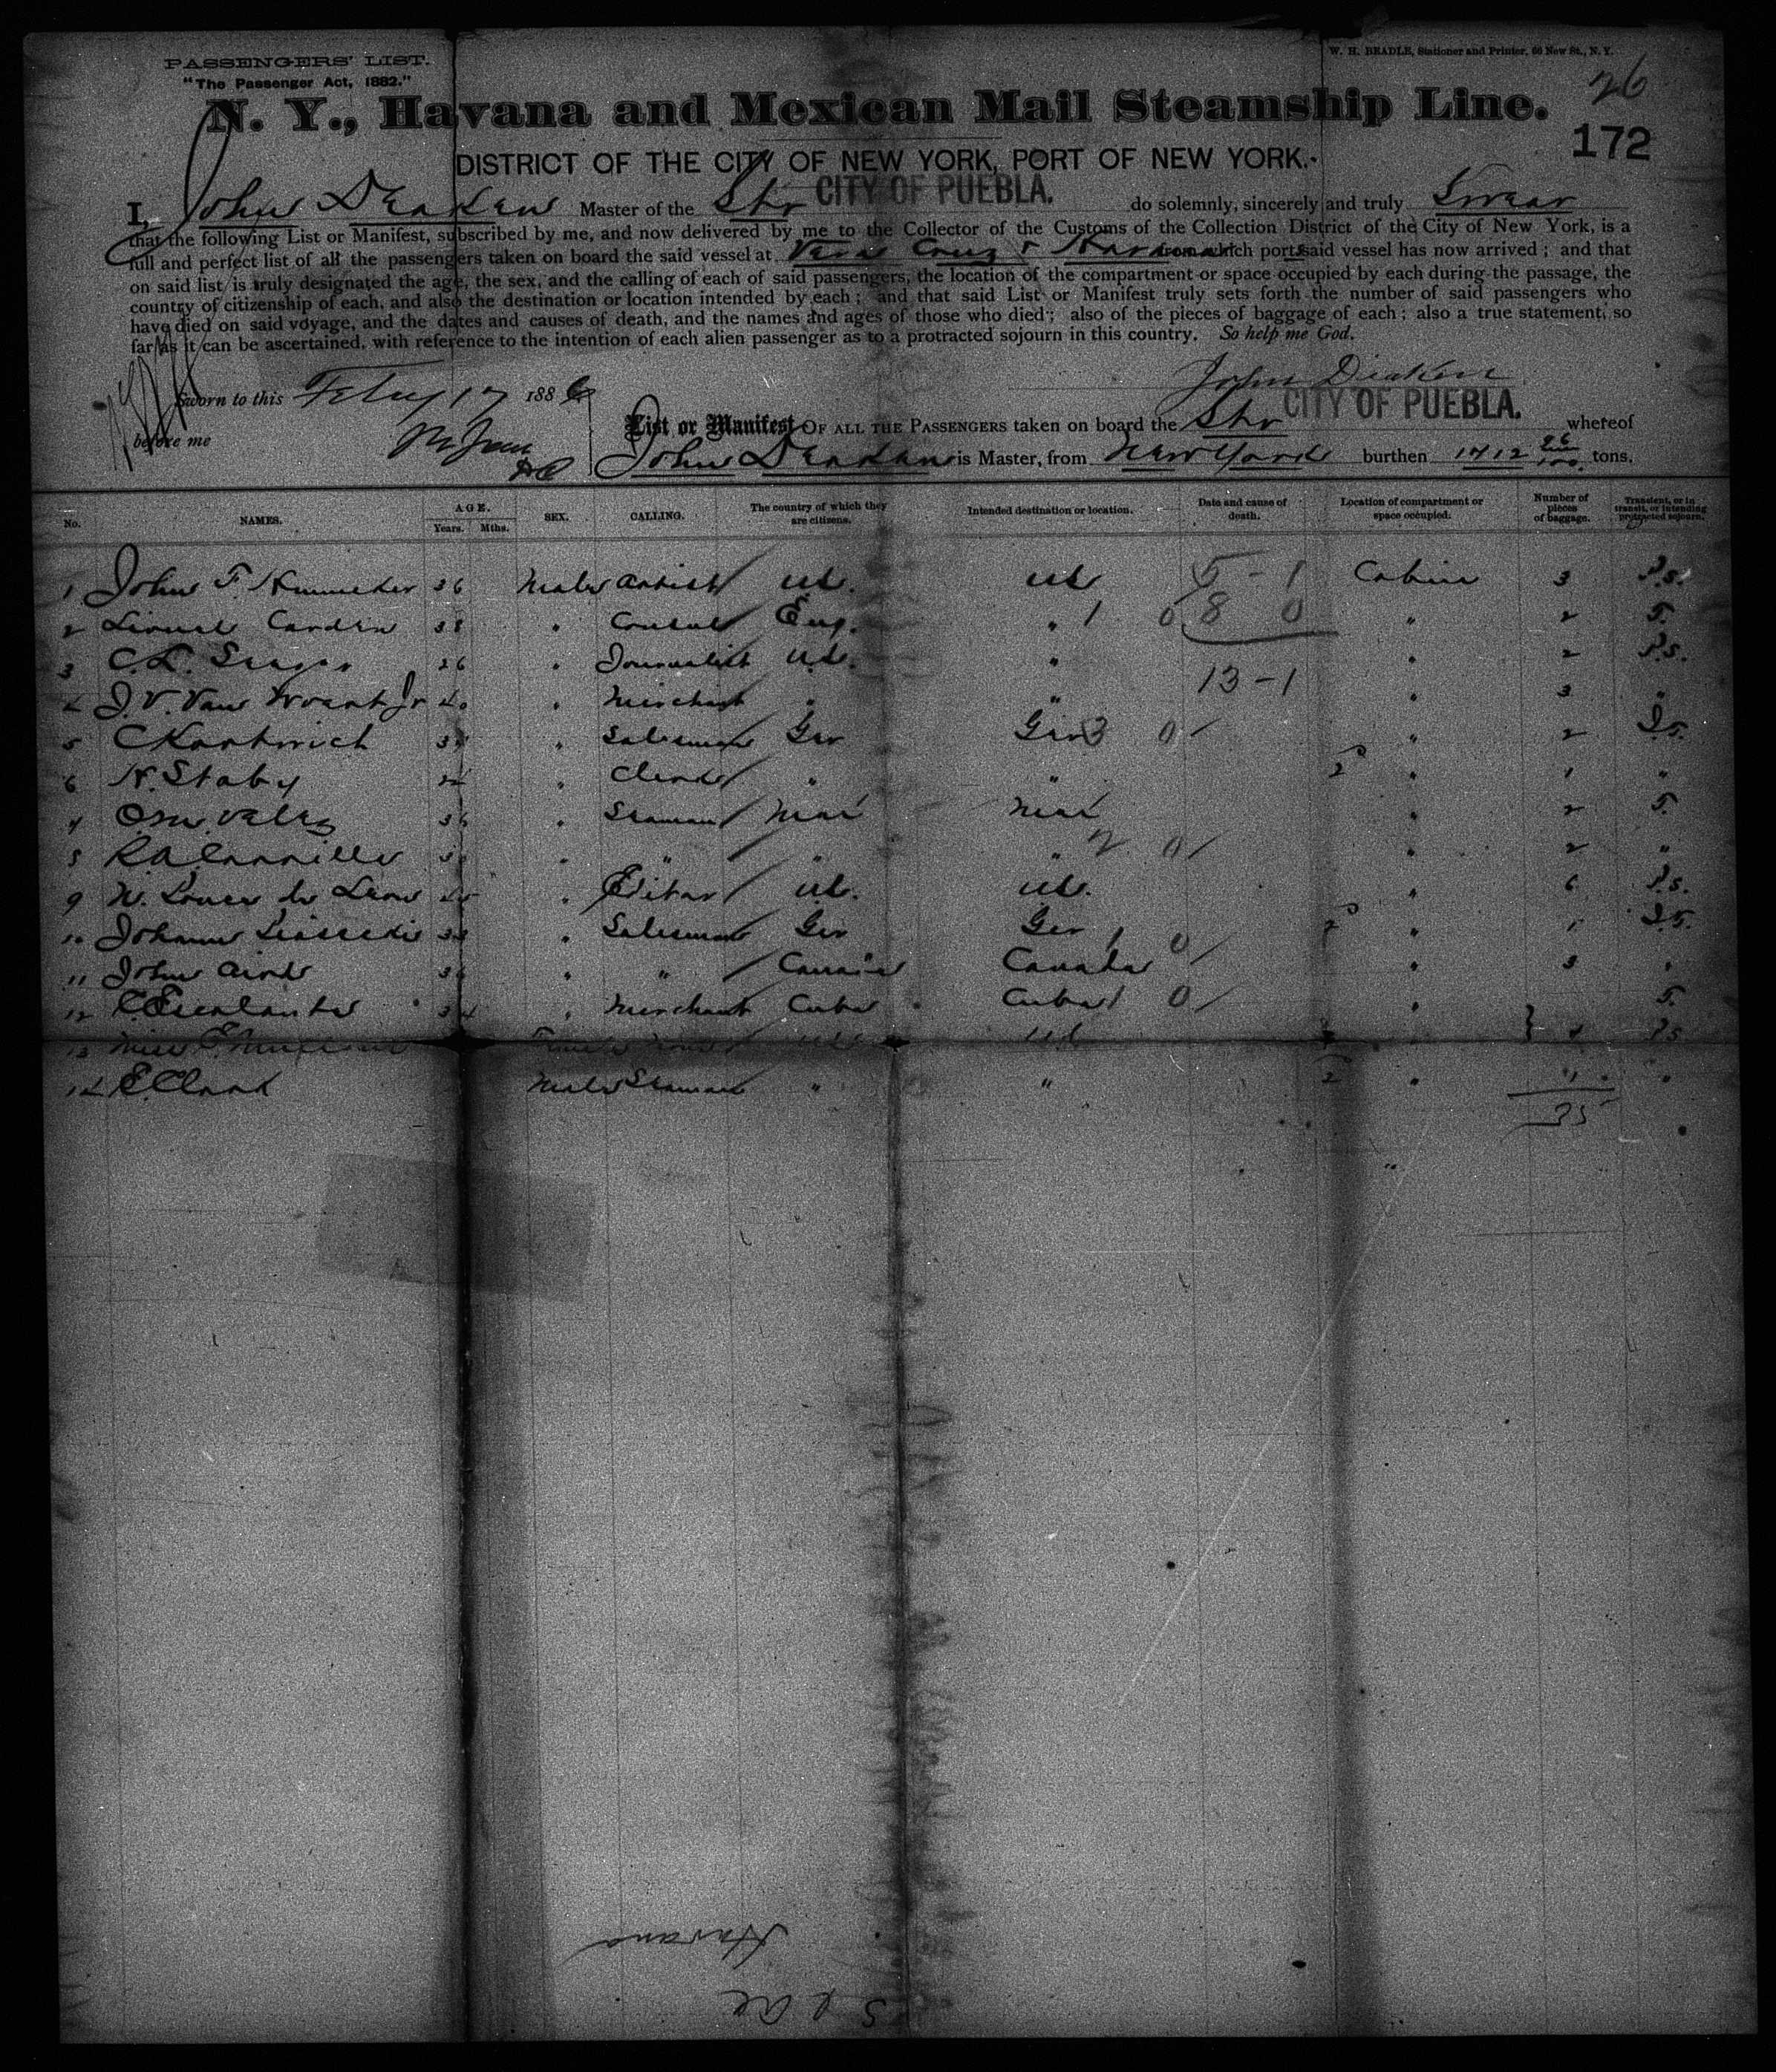 PASSENGERS' LIST.
"The Passenger Act, 1882."
W. H. BEADLE, Stationer and Printer, 66 New St., N. Y.
26
N. Y., Havana and Mexican Mail Steamship Line.
172
DISTRICT OF THE CITY OF NEW YORK, PORT OF NEW YORK.
I, John Deaken Master of the Str CITY OF PUEBLA. do solemnly, sincerely and truly Swear
that the following List or Manifest, subscribed by me, and now delivered by me to the Collector of the Customs of the Collection District of the City of New York, is a
full and perfect list of all the passengers taken on board the said vessel at Vera Cruz & Havana from which port said vessel has now arrived; and that
on said list is truly designated the age, the sex, and the calling of each of said passengers, the location of the compartment or space occupied by each during the passage, the
country of citizenship of each, and also the destination or location intended by each; and that said List or Manifest truly sets forth the number of said passengers who
have died on said voyage, and the dates and causes of death, and the names and ages of those who died; also of the pieces of baggage of each; also a true statement, so
far as it can be ascertained, with reference to the intention of each alien passenger as to a protracted sojourn in this country. So help me God.
John Deaken
Sworn to this Feby 17 1886
before me
List or Manifest OF ALL THE PASSENGERS taken on board the Str CITY OF PUEBLA. whereof
John Deaken is Master, from New York burthen 1712 26/100 tons.
No. NAMES. AGE. Years. Mths. SEX. CALLING. The country of which they are citizens. Intended destination or location. Date and cause of death. Location of compartment or space occupied. Number of pieces of baggage. Transient, or in transit, or intending protracted sojourn.
1 John F. 36 Male Artist U.S. U.S. 5 - 1 Cabin 3 P.S.
2 Lionel Carden 38 " Consul Eng. " 1 0 8 0 " 2 T.
3 C. L. 26 " Journalist U.S. " " 2 P.S.
4 J. V. Van Woert Jr 40 " Merchant " " 13 - 1 " 3 "
5 C Kortwich " Salesman Ger Ger 3 0 " 2
6 H. Staby " Clerk " " " 1 "
7 36 " Seaman Mex Mex " 2 T.
8 " " " " 2 0 " 2 "
9 Ponce de Leon " Editor U.S. U.S. " 6 P.S.
10 " Salesman Ger Ger 1 0 " 1
11 John Aird " " Canada Canada " 3 "
12 Escalante 34 " Merchant Cuba Cuba 1 0 " T.
13 Miss E. Female U.S. 4 P.S.
14 E. Clark Male Seaman " " " "
35
Havana